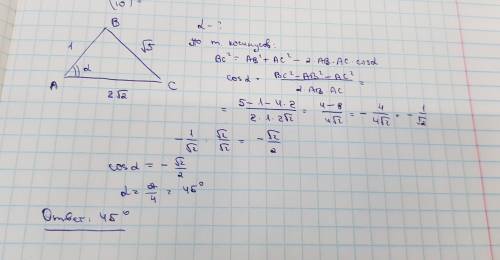 (10)
B
1
√5
α
A
C
2√2
α - ?
По т. косинусов:
BC² = AB² + AC² - 2 AB·AC · cosα
cosα = (BC² - AB² - AC²) / (2 AB·AC) =
= (5 - 1 - 4·2) / (2·1·2√2) = (4 - 8) / (4√2) = - 4 / (4√2) = - 1 / √2
- 1/√2 · √2/√2 = - √2/2
cosα = - √2/2
α = π/4 = 45°
Ответ: 45°